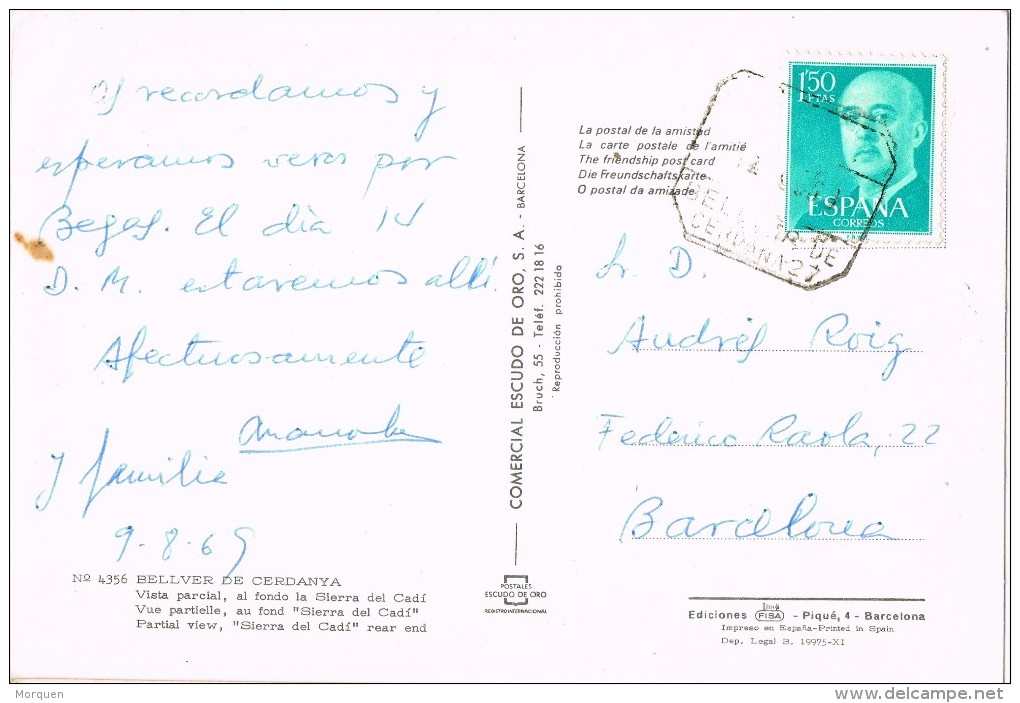 recordamos y
esperamos veros por
Begas. El día 14
D. M. estaremos allí.
Afectuosamente
y familia
9-8-69
Nº 4356 BELLVER DE CERDANYA
Vista parcial, al fondo la Sierra del Cadí
Vue partielle, au fond "Sierra del Cadí"
Partial view, "Sierra del Cadí" rear end
COMERCIAL ESCUDO DE ORO, S. A. - BARCELONA
Bruch, 55 - Teléf. 222 18 16
Reproducción prohibido
POSTALES
ESCUDO DE ORO
REGISTRO INTERNACIONAL
La postal de la amistad
La carte postale de l'amitié
The friendship post card
Die Freundschaftskarte
O postal da amizade
1'50
PTAS
ESPAÑA
CORREOS
BELLVER DE
CERDAÑA 27
Sr. D.
Andrés Roig
Federico Raola, 22
Barcelona
Ediciones FISA - Piqué, 4 - Barcelona
Impreso en España-Printed in Spain
Dep. Legal B. 19975-XI
Morquen
delcampe.net